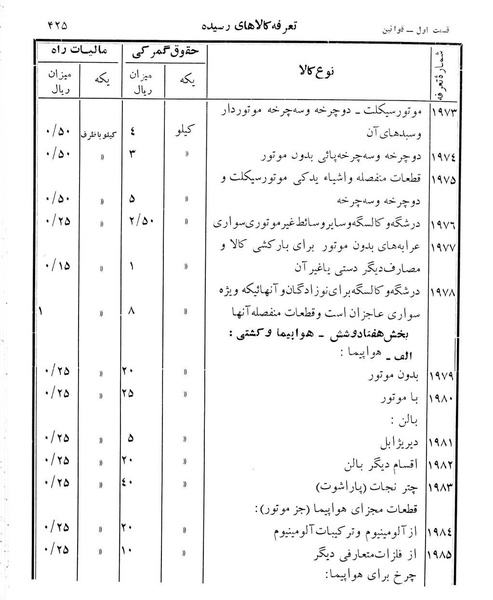 قسمت اول ــ قوانین تعرفه کالاهای رسیده ۴۲۵
شمارهٔ تعرفه نوع کالا حقوق گمرکی مالیات راه
یکه میزان ریال یکه میزان ریال
۱۹۷۳ موتورسیکلت ــ دوچرخه وسه‌چرخه موتوردار
وسبدهای آن کیلو ۴ کیلو باظرف ۰/۵۰
۱۹۷۴ دوچرخه وسه‌چرخه پائی بدون موتور » ۳ » ۰/۵۰
۱۹۷۵ قطعات منفصله واشیاء یدکی موتورسیکلت و
دوچرخه وسه‌چرخه » ۵ » ۰/۵۰
۱۹۷۶ درشگه وکالسگه وسایر وسائط غیرموتوری سواری » ۲/۵۰ » ۰/۲۵
۱۹۷۷ عرابه‌های بدون موتور برای بارکشی کالا و
مصارف دیگر دستی یاغیر آن » ۱ » ۰/۱۵
۱۹۷۸ درشگه وکالسگه برای نوزادگان و آنهائیکه ویژه
سواری عاجزان است وقطعات منفصله آنها » ۸ » ۱
بخش هفتادوشش ــ هواپیما وکشتی :
الف ــ هواپیما :
۱۹۷۹ بدون موتور » ۲۰ » ۰/۲۵
۱۹۸۰ با موتور » ۲۵ » ۰/۲۵
بالن :
۱۹۸۱ دیریژابل » ۵ » ۰/۲۵
۱۹۸۲ اقسام دیگر بالن » ۲۰ » ۰/۲۵
۱۹۸۳ چتر نجات (پاراشوت) » ۴۰ » ۰/۲۵
قطعات مجزای هواپیما (جز موتور) :
۱۹۸۴ از آلومینیوم وترکیبات آلومینیوم » ۲۰ » ۰/۲۵
۱۹۸۵ از فلزات متعارفی دیگر » ۱۰ » ۰/۲۵
چرخ برای هواپیما :